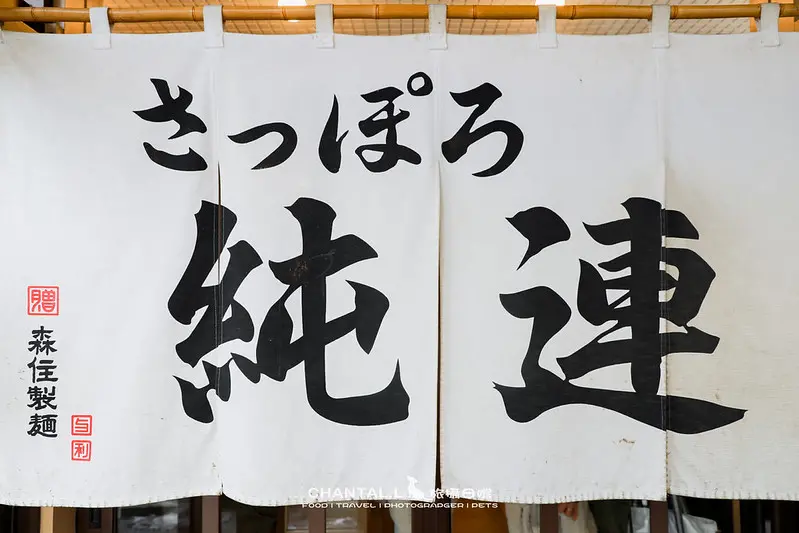 さっぽろ
純連
贈
森住製麺
与利
CHANTAL.L 旅攝日嚐
FOOD | TRAVEL | PHOTOGRAPGER | PETS